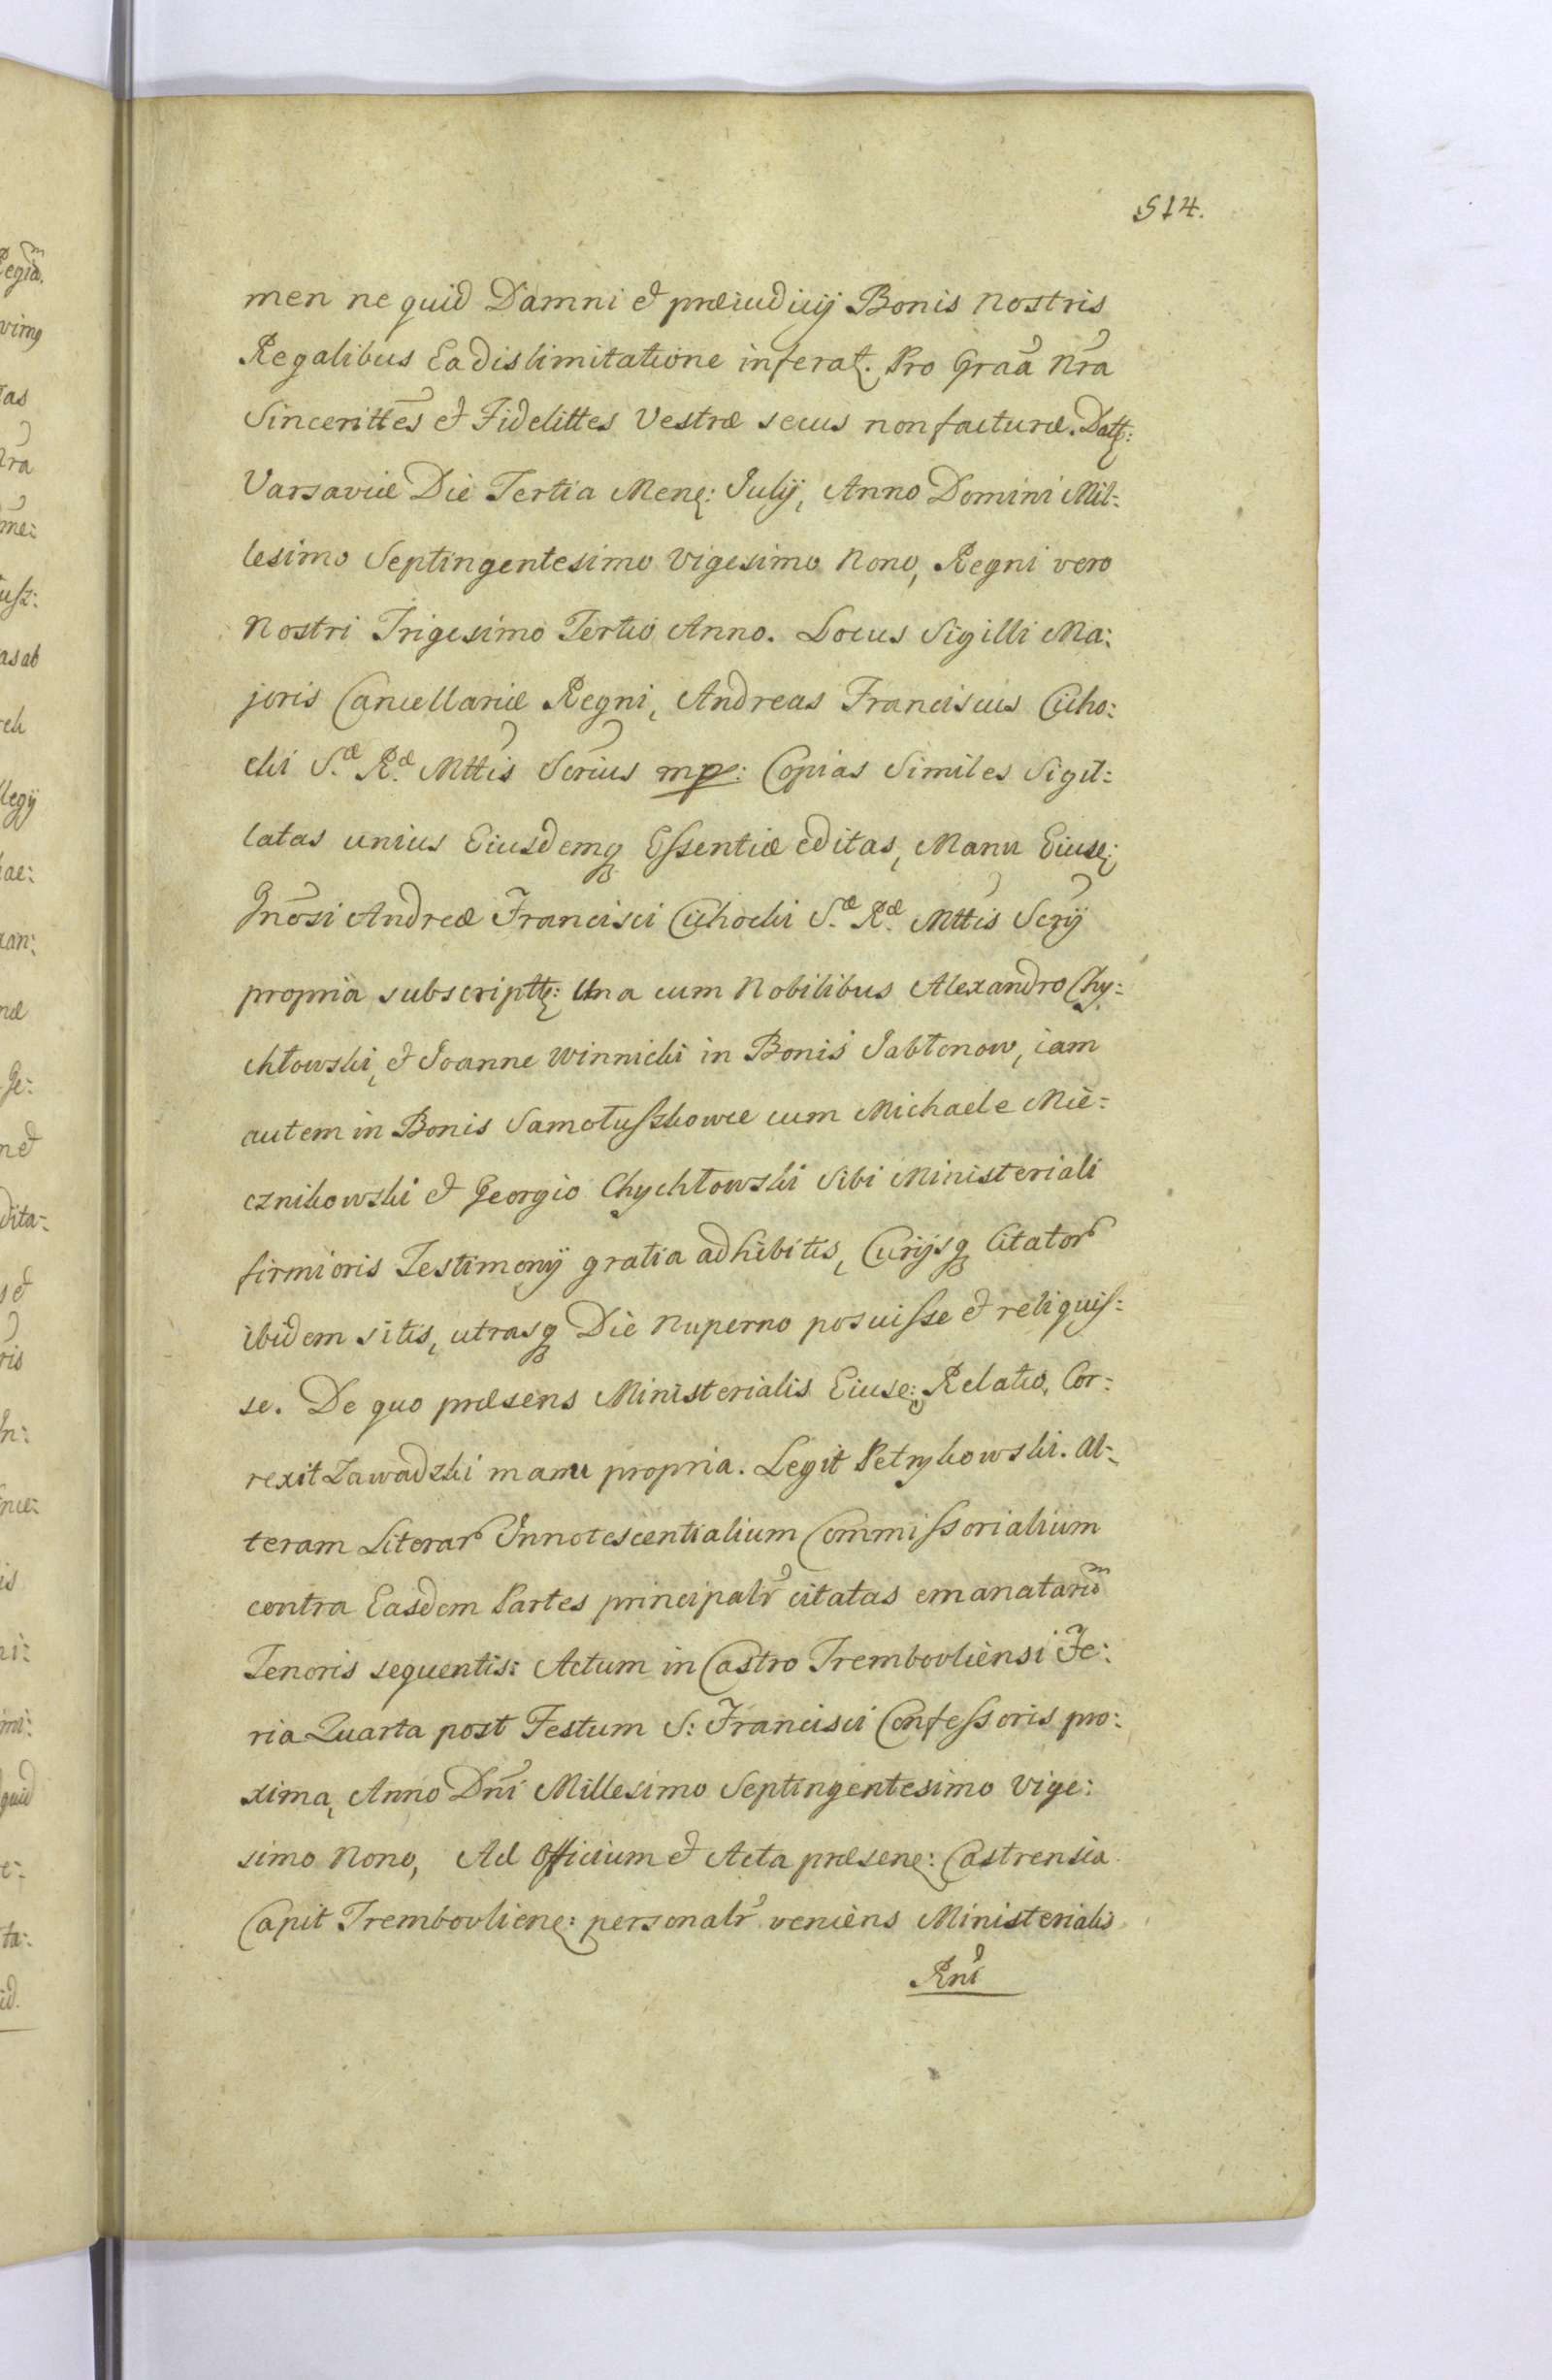 514.
men ne quid Damni et præiudicij Bonis Nostris
Regalibus Ea dislimitatione inferat. Pro Graã Nrã
Sincerittẽs et Fidelittes Vestræ secus non facturæ. Datt:
Varsaviæ Die Tertia Mens: Julij, Anno Domini Mil:
lesimo Septingentesimo Vigesimo Nono, Regni vero
Nostri Trigesimo Tertio Anno. Locus Sigilli Ma:
joris Cancellariæ Regni, Andreas Franciscus Cicho:
cki S.æ R.æ Mttis Scrius mp: Copias Similes Sigil:
latas unius Eiusdemq Essentiæ editas, Manu Eiusd:
Gnõsi Andreæ Francisci Cichocki S.æ R.æ Mttis Scrij
propria subscriptt: Una cum Nobilibus Alexandro Chy:
chłowski, et Joanne Winnicki in Bonis Jabłonow, iam
autem in Bonis Samołuszkowce cum Michaele Mie:
cznikowski et Georgio Chychłowski Sibi Ministeriali
firmioris Testimonij gratia adhibitis, Curijsq Citator
ibidem sitis, utrasq Die Nuperno posuisse et reliquis:
se. De quo præsens Ministerialis Eiusd: Relatio, Cor:
rexit Zawadzki manu propria. Legit Petrykowski. Al:
teram Literar Innotescentialium Commissorialium
contra Easdem Partes principalr citatas emanatarũ
Tenoris sequentis: Actum in Castro Trembovliensi Fe:
ria Quarta post Festum S: Francisci Confessoris pro:
xima, Anno Dnĩ Millesimo Septingentesimo Vige:
simo Nono, Ad Officium et Acta præsens: Castrensia
Capit Trembovliens: personalr veniens Ministerialis
Rnĩ